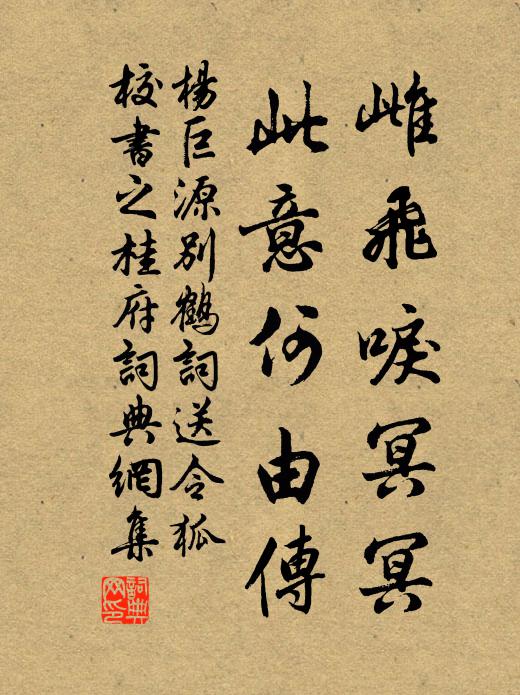 雌飛唳冥冥
此意何由傳
楊巨源別鶴詞送令狐
校書之桂府詞典網集
詞典
网印